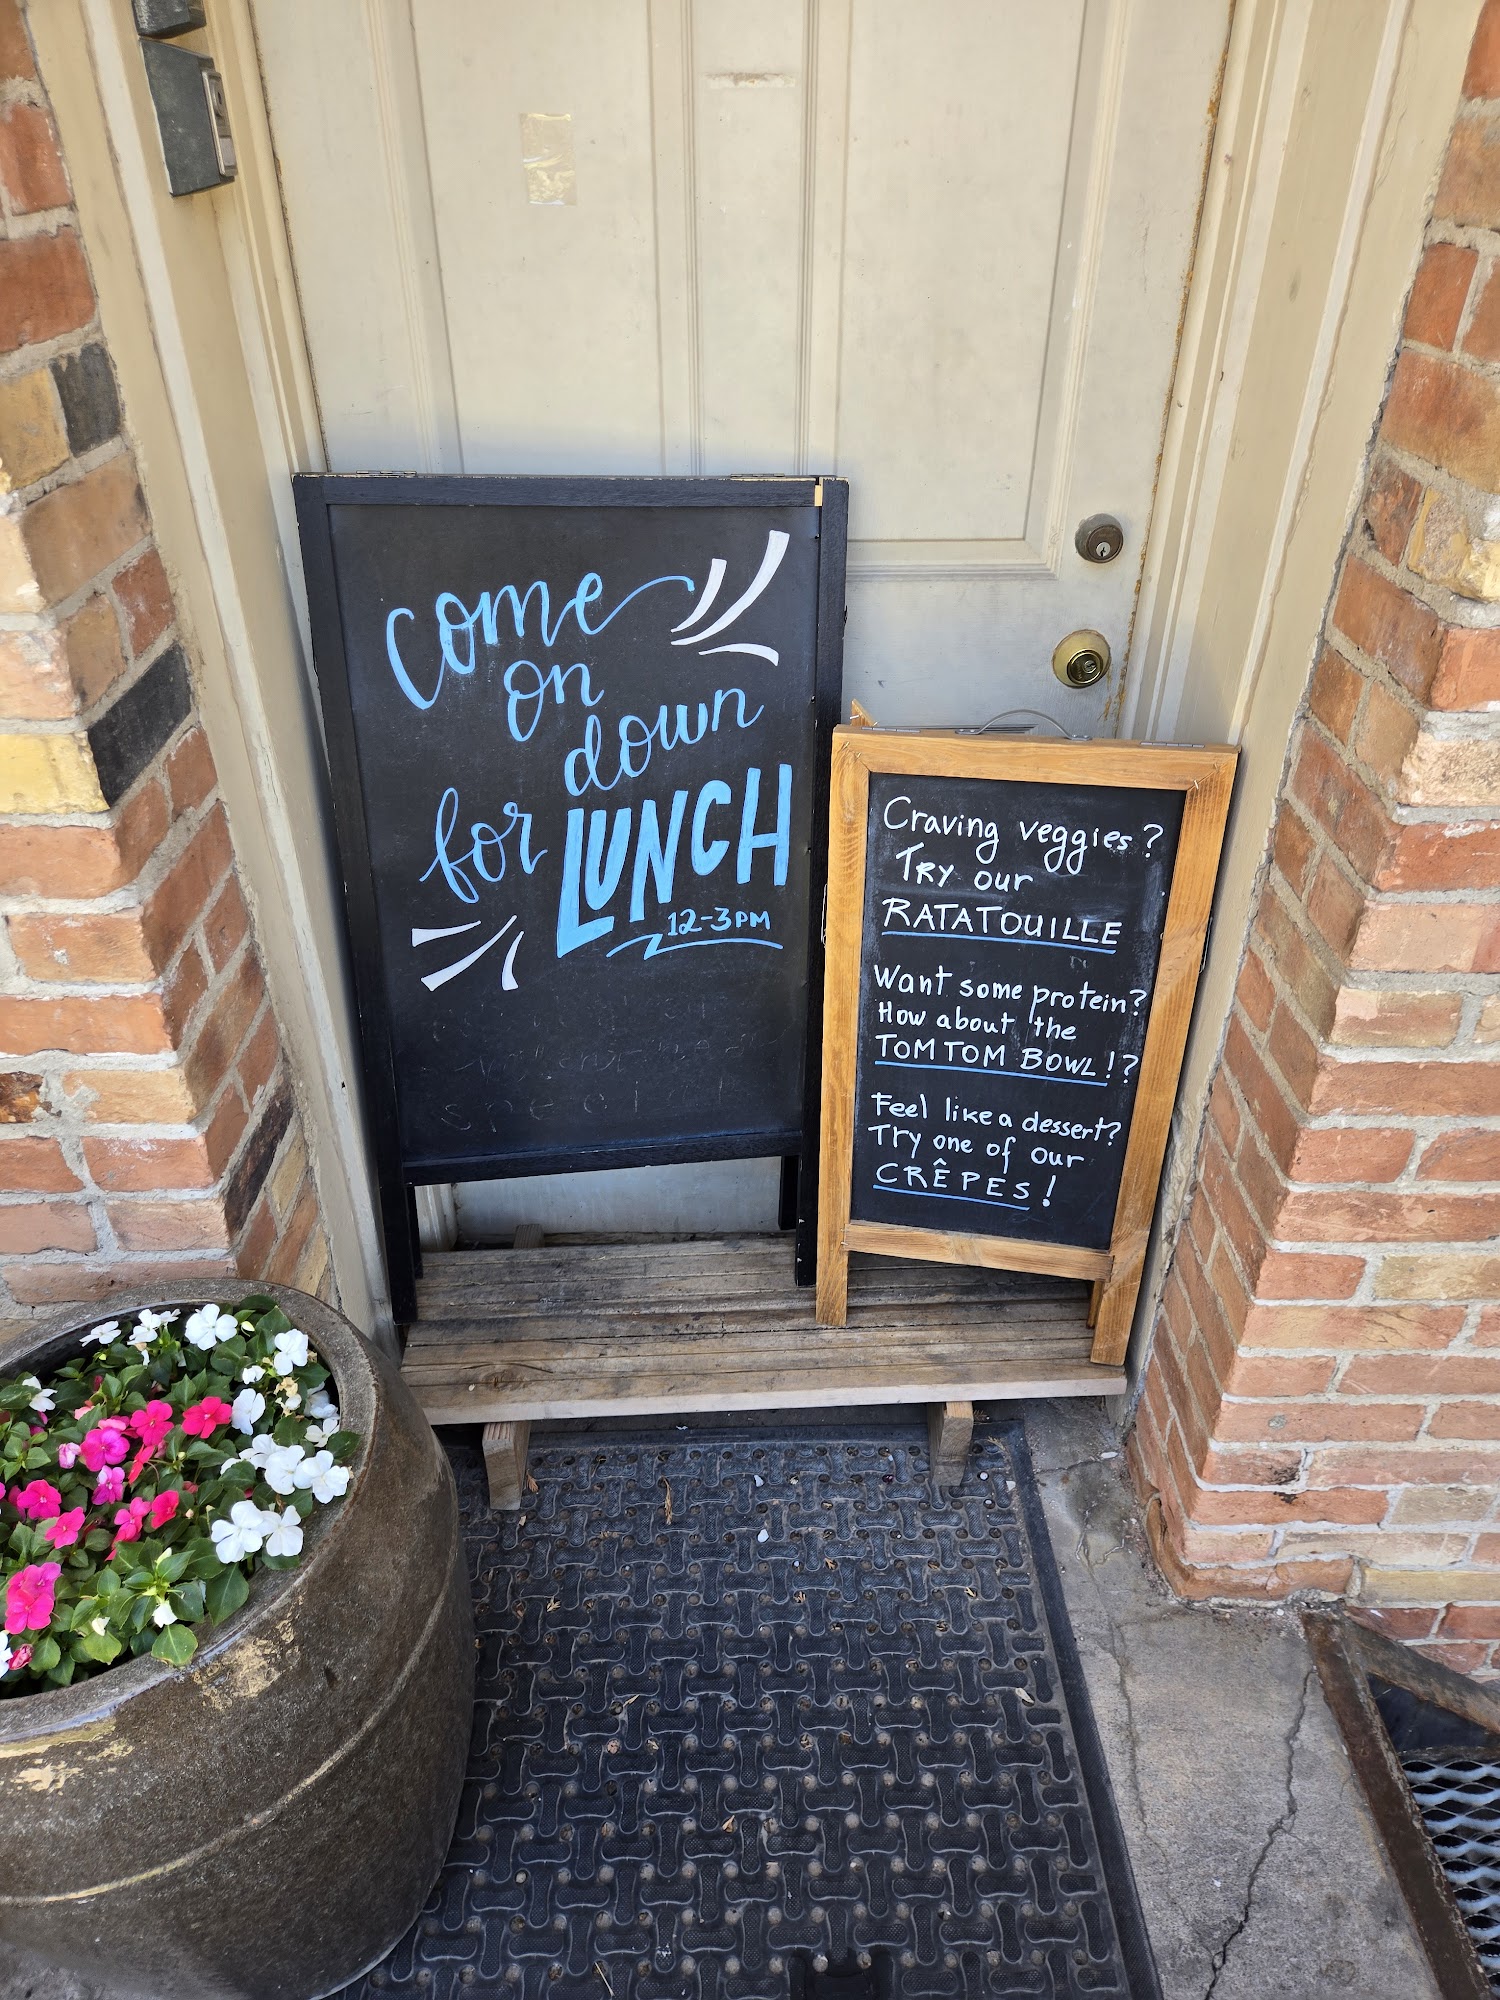 Come
on
down
for LUNCH
12-3PM
Craving veggies?
Try our
RATATOUILLE
Want some protein?
How about the
TOMTOM BOWL!?
Feel like a dessert?
Try one of our
CRÊPES!
special